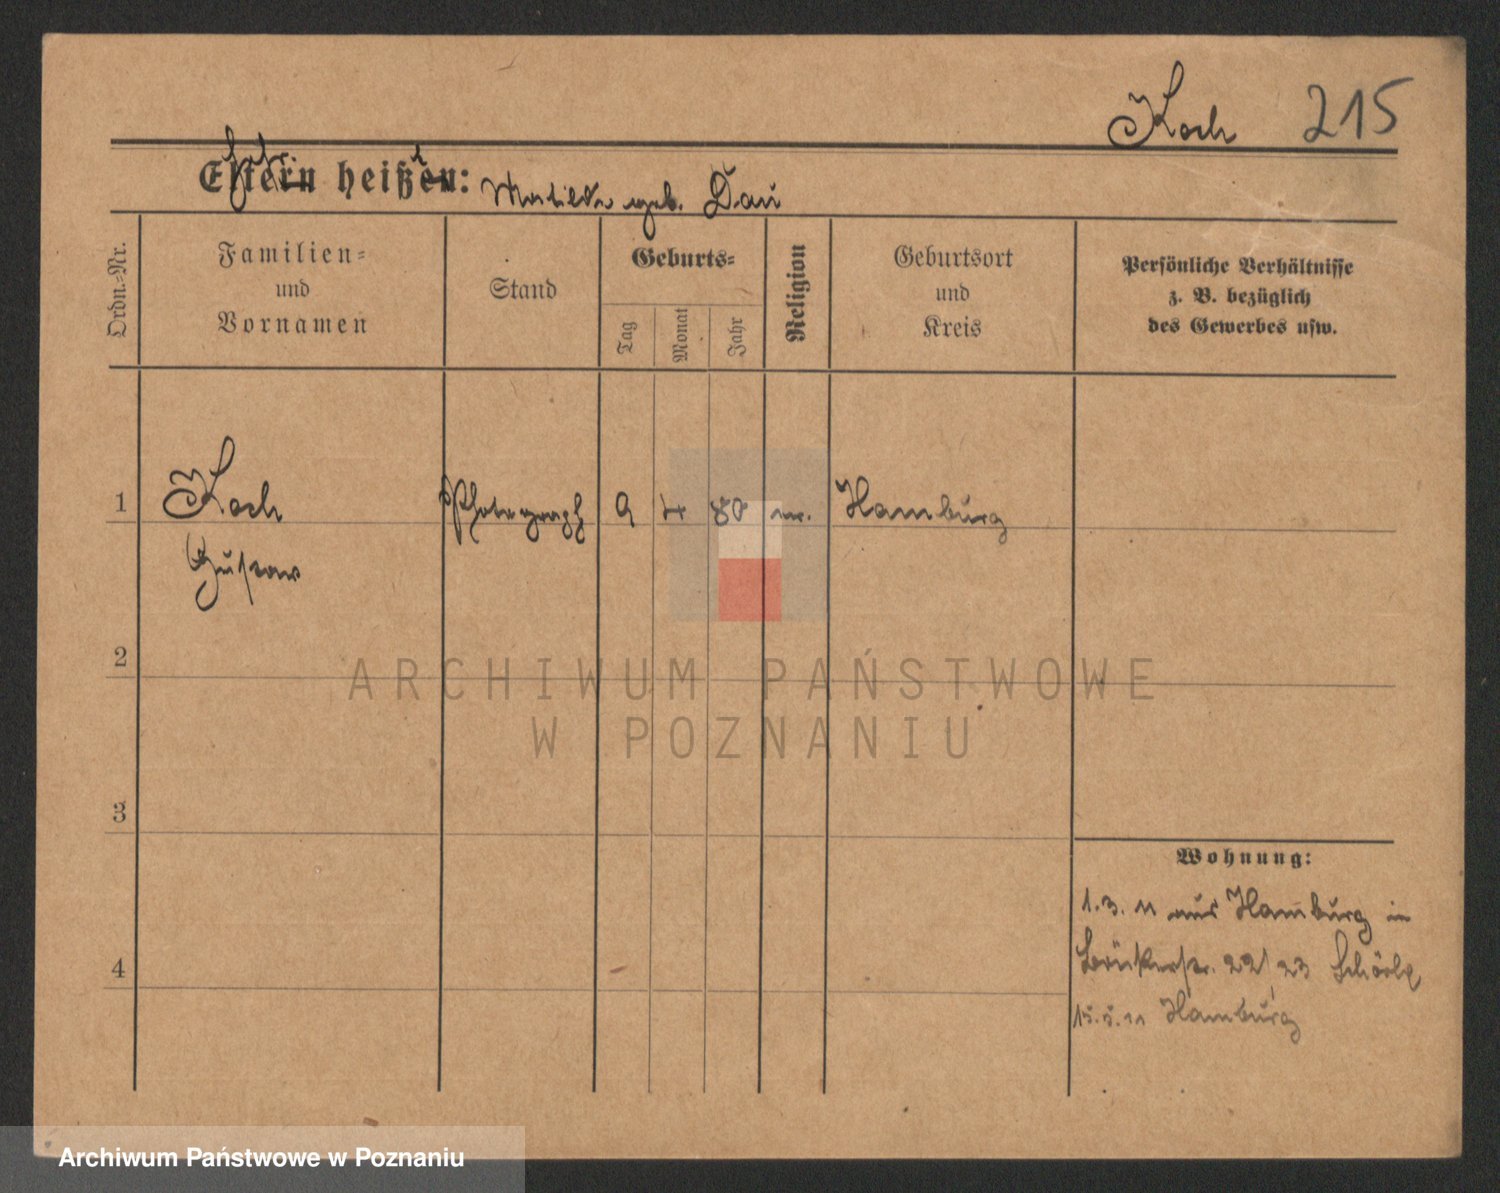 Koch 215
Eltern heißen:
Mathilde geb. Dau
Ordn.-Nr.
Familien-
und
Vornamen
Stand
Geburts-
Tag
Monat
Jahr
Religion
Geburtsort
und
Kreis
Persönliche Verhältnisse
z. B. bezüglich
des Gewerbes usw.
1 Koch Photograph 9 4 80 Hamburg
Gustav
2
3
4
Wohnung:
1.3.11 aus Hamburg in
22/23
15.5.11 Hamburg
ARCHIWUM PAŃSTWOWE
W POZNANIU
Archiwum Państwowe w Poznaniu